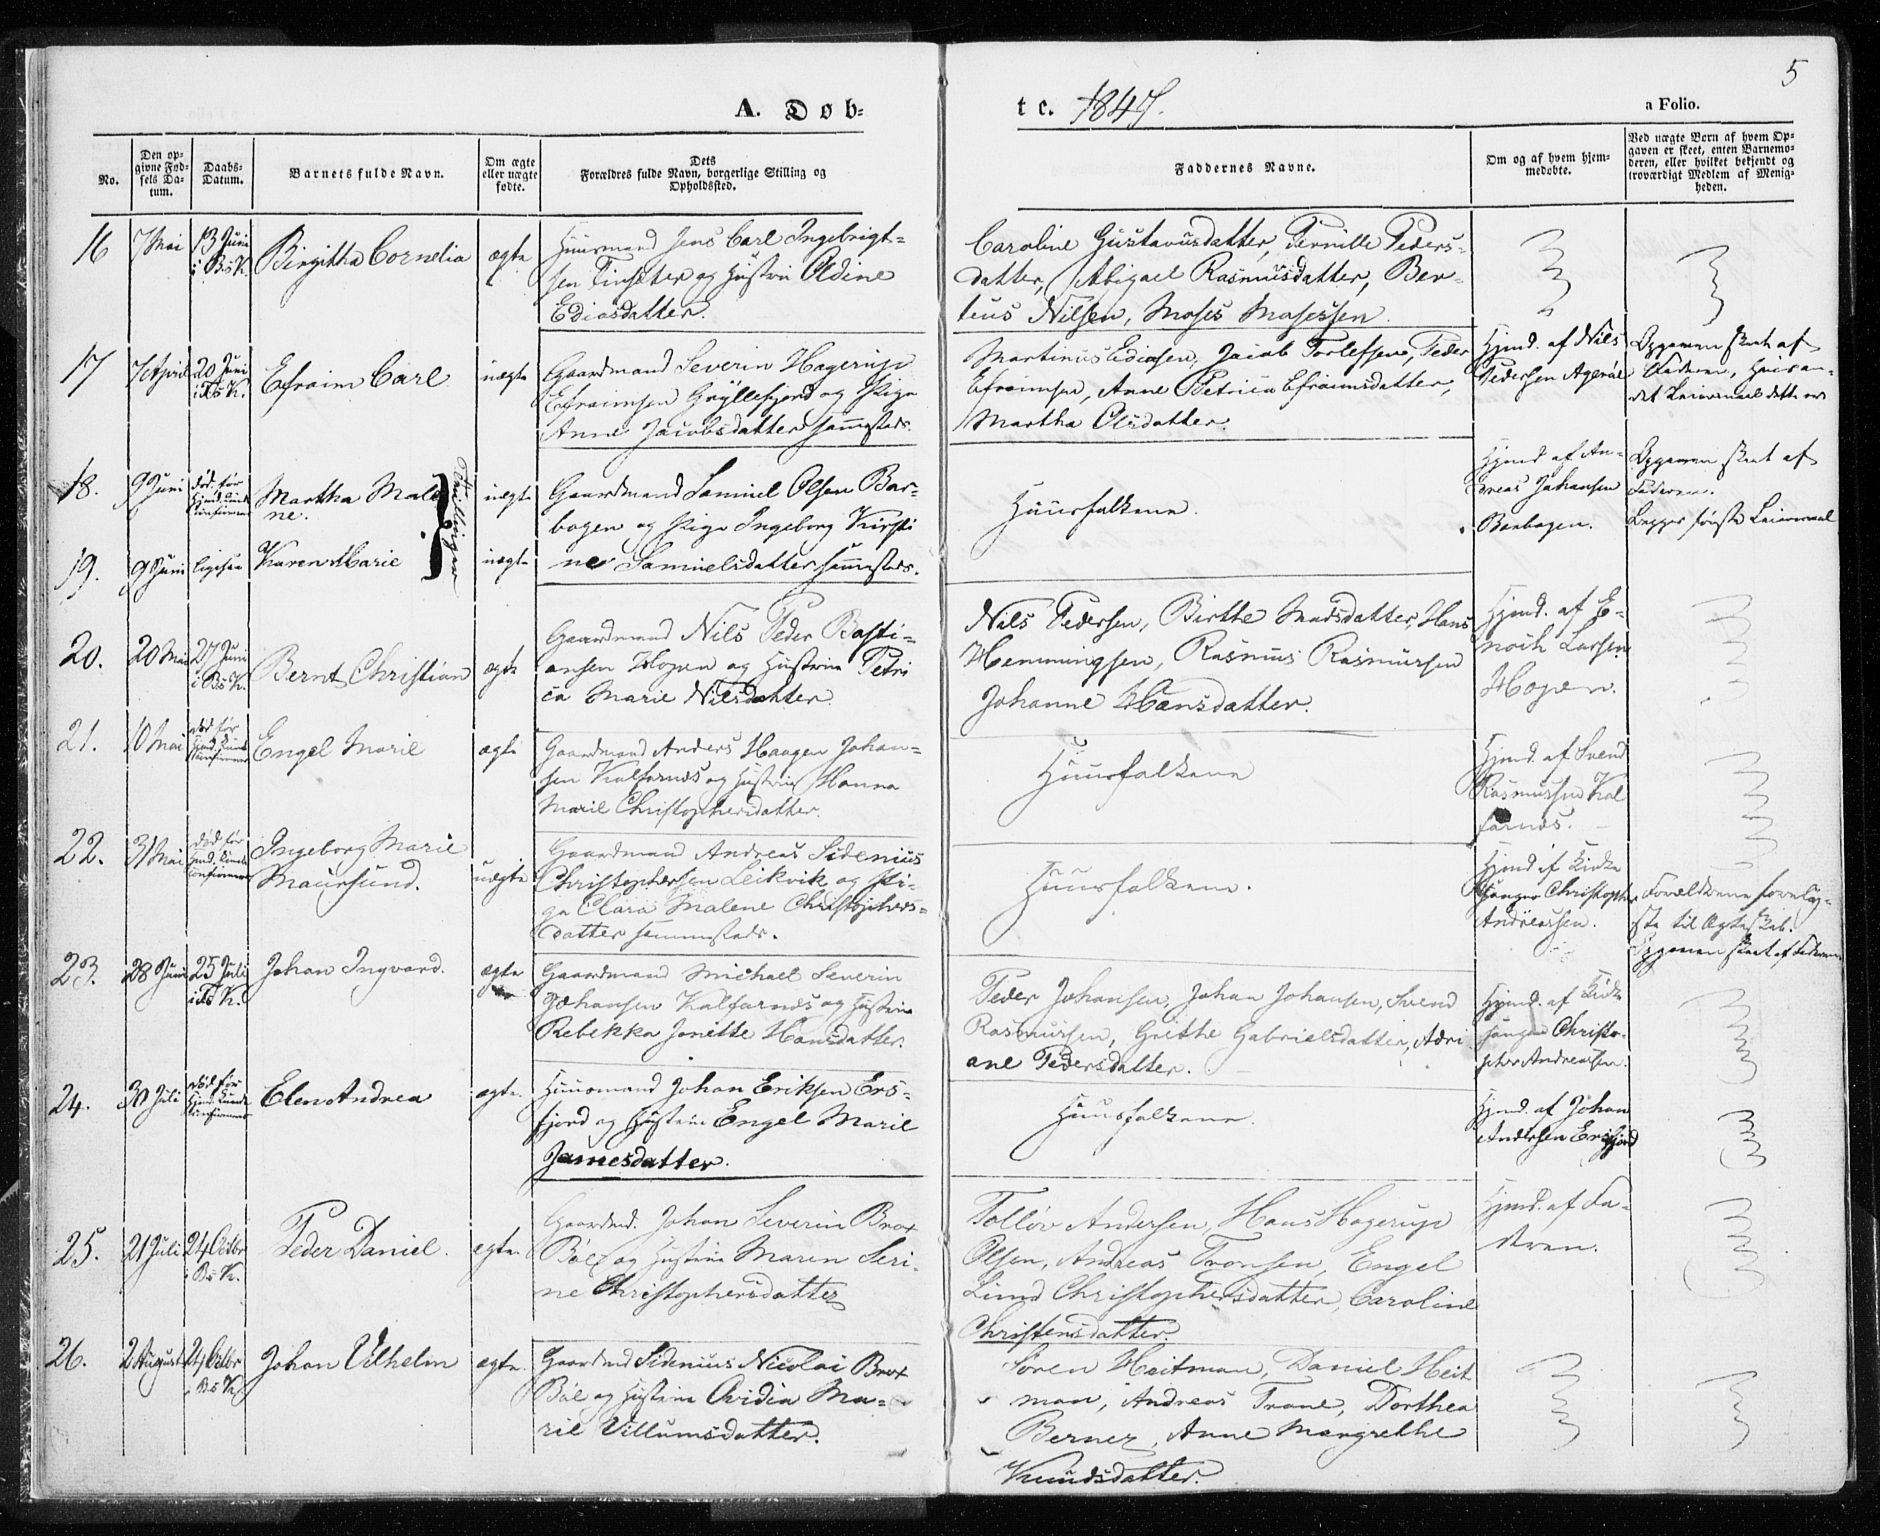 5
A. Døb-
te. 1847.
a Folio.
No.
Den op-
givne Fød-
sels Da-
tum.
Daabs-
Datum.
Barnets fulde Navn.
Om ægte
eller uægte
fødte.
Dets
Forældres fulde Navn, borgerlige Stilling og
Opholdssted.
Faddernes Navne.
Om og af hvem hjem-
medøbte.
Ved uægte Børn af hvem Op-
gaven er skeet, enten Barnemo-
deren, eller hvilket bekjendt og
troværdigt Medlem af Menig-
heden.
16
7 Mai
13 Juni
i Bs K.
Birgitha Cornelia
ægte
Huusmand Jens Carl Ingebrigt-
sen Finsæter og Hustru Oldine
Ediasdatter.
Caroline Gustavusdatter, Pernille Peders-
datter, Abigael Rasmusdatter, Ber-
teus Nilsen, Moses Mosessen.
17
7 April
20 Juni
i Ts K.
Efraim Carl
uægte
Gaardmand Severin Hagerup
Efraimsen Gryllefjord og Pige
Anne Jacobsdatter sammesteds.
Martinus Ediasen, Jacob Torlefsen, Peder
Efraimsen, Anne Petrica Efraimsdatter,
Martha Olsdatter.
Hjmd. af Nils
Pedersen
Opgaven skeet af
Faderen, hvis an-
det Leiermaal dette er
18.
9 Juni
død før
Hjmd. kunde
confirmeres
Martha Male-
ne.
Tvillinger
uægte
Gaardmand Samuel Olsen Bar-
bogen og Pige Ingeborg Kirsti
ne Samuelsdatter sammesteds.
Huusfolkene.
Hjmd af An-
dreas Johansen
Barbogen.
Opgaven skeet af
Faderen.
Begges første Leiermaal
19.
9 Juni
ligesaa
Karen Marie
uægte
20.
20 Mai
27 Juni
i Bs K.
Bernt Christian
ægte
Gaardmand Nils Peder Basti-
ansen Hopen og Hustru Petri
ca Marie Nilsdatter.
Nils Pedersen, Birthe Madsdatter, Hans
Hemmingsen, Rasmus Rasmussen
Johanne Hansdatter.
Hjmd. af E-
noch Larsen
Hopen.
21.
10 Mai
død før
Hjmd. kunde
confirmeres
Engel Maril
ægte
Gaardmand Anders Haagen Johan-
sen Kalfarnæs og Hustru Hanna
Maril Christophersdatter.
Huusfolkene
Hjmd. af Svend
Rasmussen Kal
farnæs.
22.
31 Mai
død før
Hjmd. kunde
confirmeres
Ingeborg Marie
Maursund.
uægte
Gaardmand Andreas Sidenius
Christophersen Leikvik og Pi-
ge Clara Malene Christophers-
datter sammesteds.
Huusfolkene.
Hjmd af Kirke
sanger Christopher
Andreassen.
Forældrene forlov-
ede til Ægteskab.
Opgaven skeet af Faderen
23.
28 Juni
25 Juli
i Ts K.
Johan Ingvard.
ægte
Gaardmand Michael Severin
Johansen Kalfarnæs og Hustru
Rebekka Jonette Hansdatter.
Peder Johansen, Johan Johansen, Svend
Rasmussen, Grethe Gabrielsdatter, Adri
ane Pedersdatter.
Hjmd. af Kirke
sanger Christo-
pher Andreassen.
24.
30 Juli
død før
Hjmd. kunde
confirmeres
Elen Andrea
ægte.
Huusmand Johan Eriksen Ers-
fjord og Hustru Engel Maril
Jamesdatter.
Huusfolkene.
Hjmd. af Johan
Andersen Ersfjord
25.
21 Juli
24 Octbr
i Bs K.
Peder Daniel.
ægte.
Gaardmd. Johan Severin Brox
Bøle og Hustru Maren Seri-
ne Christophersdatter
Folløv Andersen, Hans Hagerup
Olsen, Andreas Tronsen, Engel
Lund Christophersdatter, Caroline
Christensdatter.
Hjmd. af Fa-
deren.
26.
2 August
24 Octbr
i Bs K.
Johan Vilhelm
ægte.
Gaardmd Sidenius Nicolai Brox
Bøle og Hustru Ovidia Ma-
ril Villumsdatter.
Søren Heitman, Daniel Heit
man, Andreas Trane, Dorthea
Berner, Anne Margrethe
Knudsdatter.